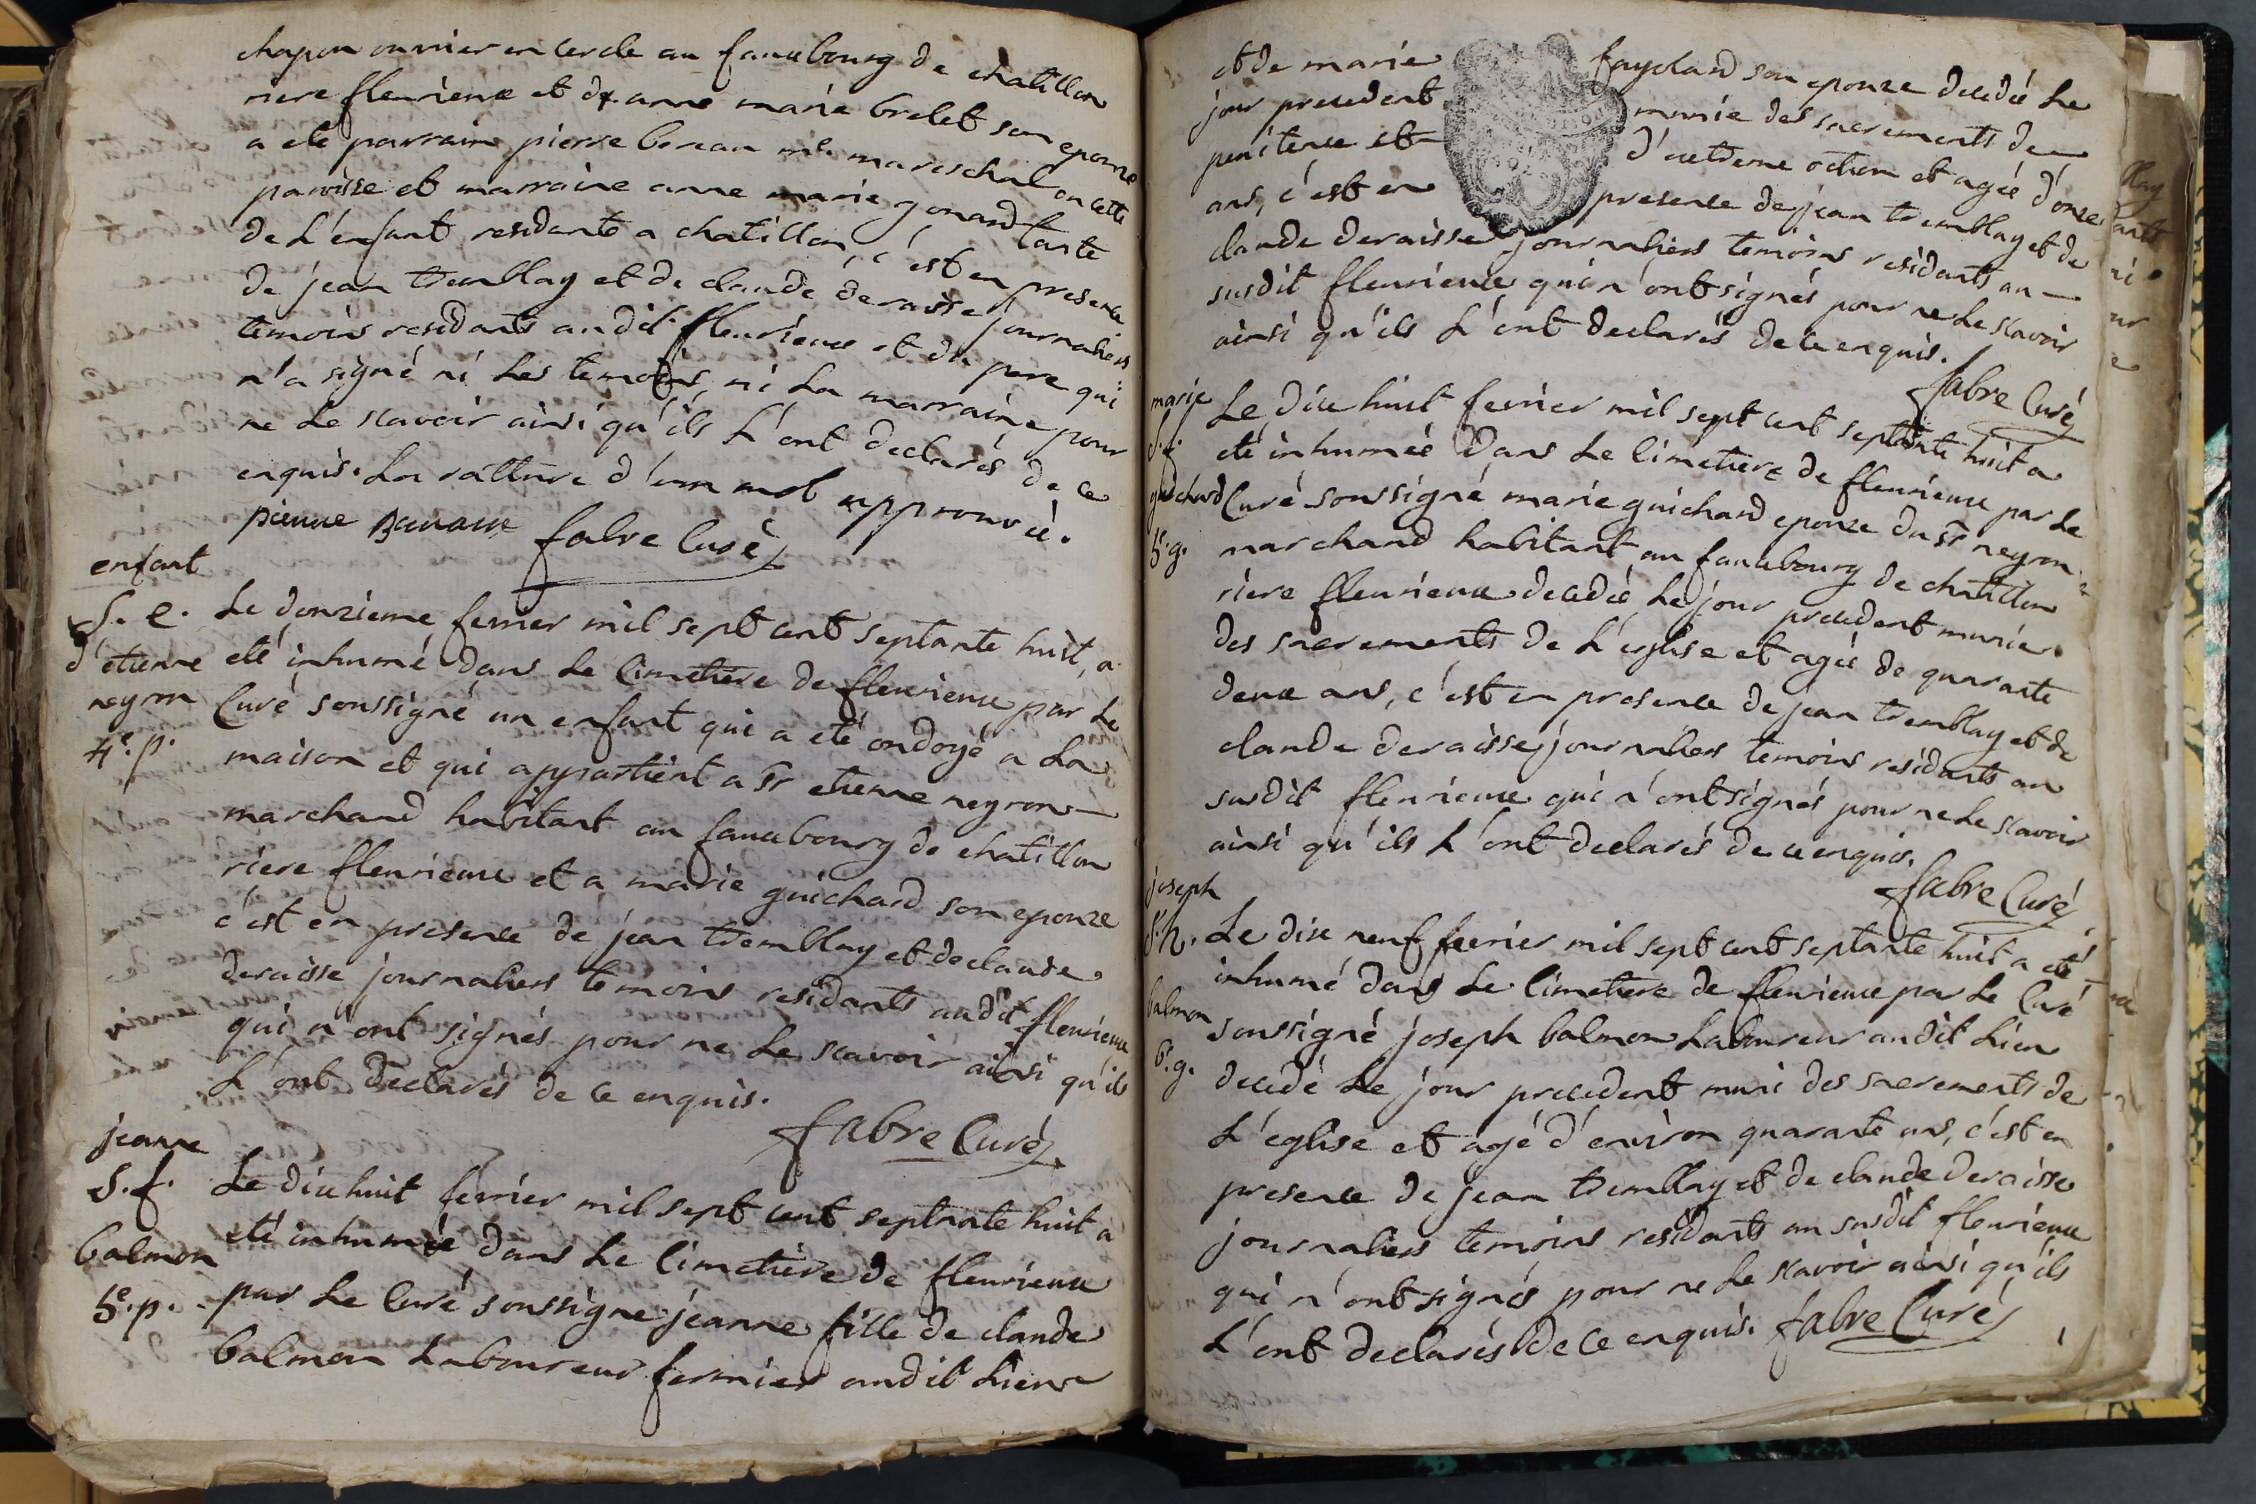 chapon ouvrier en cercle au fauxbourg de chatillon
riere fleurieux et de anne marie brelet son epouze
a ete parrain pierre benean me mareschal en cette
paroisse et marraine anne marie gonard tante
de L'enfant residante a chatillon, c'est en presence
de jean tremblay et de claude deraisse journaliers
temoins residants audit fleurieux et du pere qui
n'a signé ni Les temoins, ni La marraine pour
ne Le scavoir ainsi qu'ils L'ont declarés de ce
enquis. La rature d'un mot approuvée.
pierre fabre Curé
enfant
S. e. Le douzieme fevrier mil sept cent septante huit, a
d'etienne eté inhumé dans Le Cimetiere de fleurieux par Le
neyron Curé soussigné un enfant qui a eté ondoyé a La
4e. p. maison et qui appartient a Sr etienne neyron
marchand habitant au fauxbourg de chatillon
riere fleurieux et a marie guichard son epouze
c'est en presence de jean tremblay et de claude
deraisse journaliers temoins residants audit fleurieux
qui n'ont signés pour ne Le scavoir ainsi qu'ils
L'ont declarés de ce enquis.
fabre Curé
jeanne
S. f. Le dix huit fevrier mil sept cent septante huit a
balmon eté inhumée dans Le Cimetiere de fleurieux
5e. p. par Le Curé soussigné jeanne fille de claude
balmon Laboureur fermier audit Lieu
et de marie fayolard son epouze decedée Le
jour precedent munie des sacrements de
penitence et d'extreme oction et agée d'onze
ans, c'est en presence de jean tremblay et de
claude deraisse journaliers temoins residants au
susdit fleurieux qui n'ont signés pour ne Le scavoir
ainsi qu'ils L'ont declarés de ce enquis.
fabre Curé
marie Le dix huit fevrier mil sept cent septante huit a
S. f. eté inhumée dans Le Cimetiere de fleurieux par Le
guichard Curé soussigné marie guichard epouze du Sr neyron
5e. g. marchand habitant au fauxbourg de chatillon
riere fleurieux decedée Le jour precedent munie
des sacrements de L'eglise et agée de quarante
deux ans, c'est en presence de jean tremblay et de
claude deraisse journaliers temoins residants au
susdit fleurieux qui n'ont signés pour ne Le scavoir
ainsi qu'ils L'ont declarés de ce enquis.
fabre Curé
joseph
S. h. Le dix neuf fevrier mil sept cent septante huit a eté
inhumé dans Le Cimetiere de fleurieux par Le Curé
balmon soussigné joseph balmon Laboureur audit Lieu
6e. g. decedé Le jour precedent muni des sacrements de
L'eglise et agé d'environ quarante ans, c'est en
presence de jean tremblay et de claude deraisse
journaliers temoins residants au susdit fleurieux
qui n'ont signés pour ne Le scavoir ainsi qu'ils
L'ont declarés de ce enquis. fabre Curé